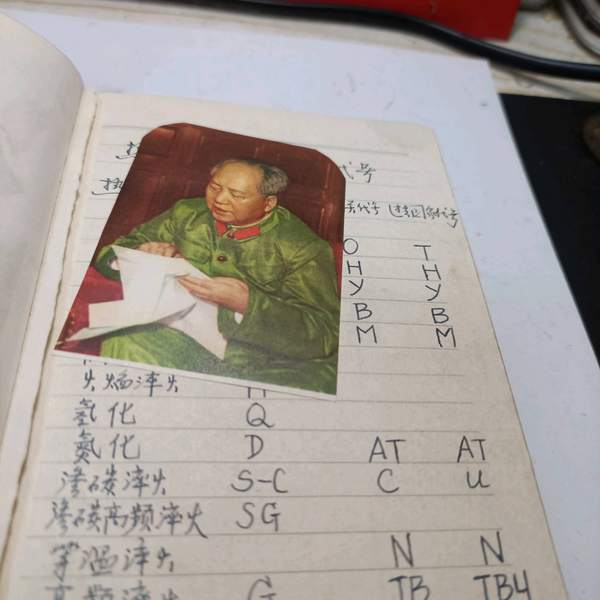 热 代号
热 代号
O T
H H
У У
B B
M M
火焰淬火 H
氢化 Q
氮化 D AT AT
渗碳淬火 S-C C U
渗碳高频淬火 SG
等温淬火 N N
高频淬火 G TB TBЧ